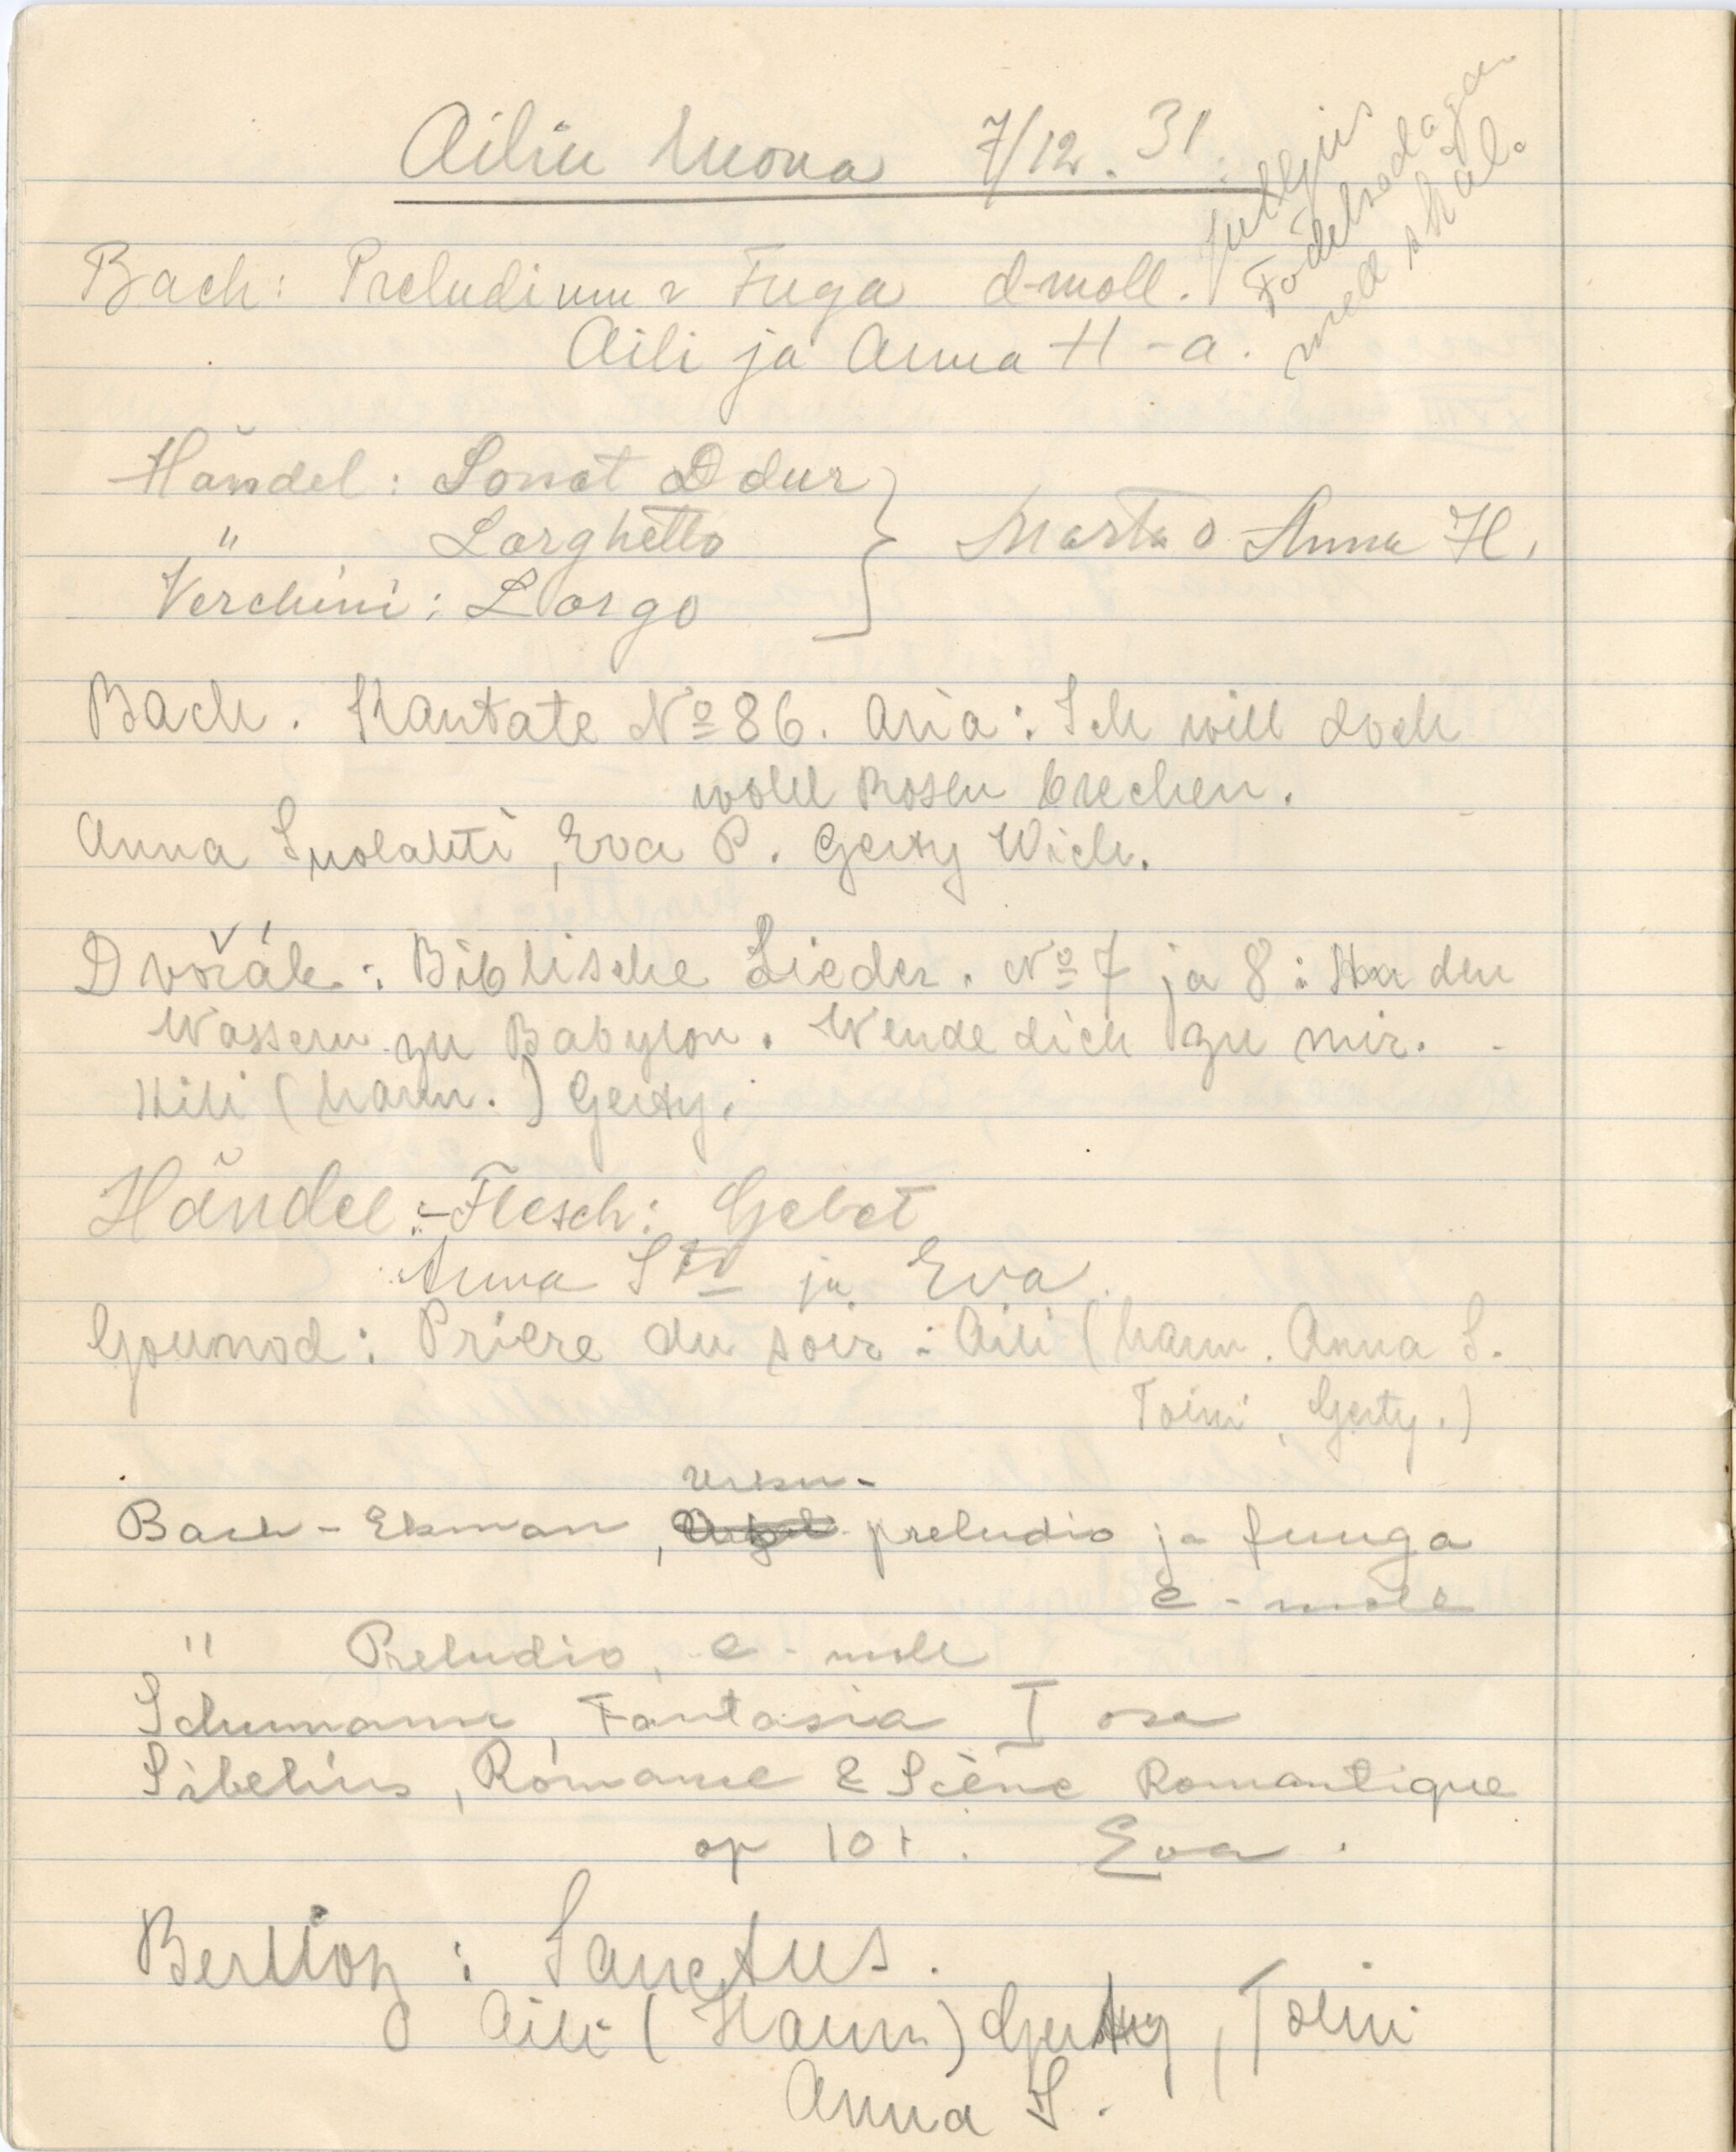 Ailin luona 7/12. 31.
Julljus
Födelsedagar
med skål.
Bach: Preludium & Fuga d-moll.
Aili ja Anna H-a.
Händel: Sonat D dur
" Larghetto
Verchini: Largo
Marta o Anna H.
Bach. Kantate No 86. Aria: Ich will doch
wohl Rosen brechen.
Anna Suolahti, Eva P. Gerty Wich.
Dvořák: Biblische Lieder. No 7 ja 8: An den
Wassern zu Babylon. Wende dich zu mir.
Aili (harm.) Gerty.
Händel-Flesch: Gebet
Anna Sti ja Eva.
Gounod: Prière du soir: Aili (harm. Anna S.
Toini, Gerty.)
Urku-
Bach-Ekman, preludio ja fuuga
e-moll
" Preludio, e-moll
Schumann, Fantasia I osa
Sibelius, Romance & Scène Romantique
op 101. Eva.
Berlioz: Sanctus.
Aili (Harm) Gerty, Toini
Anna S.